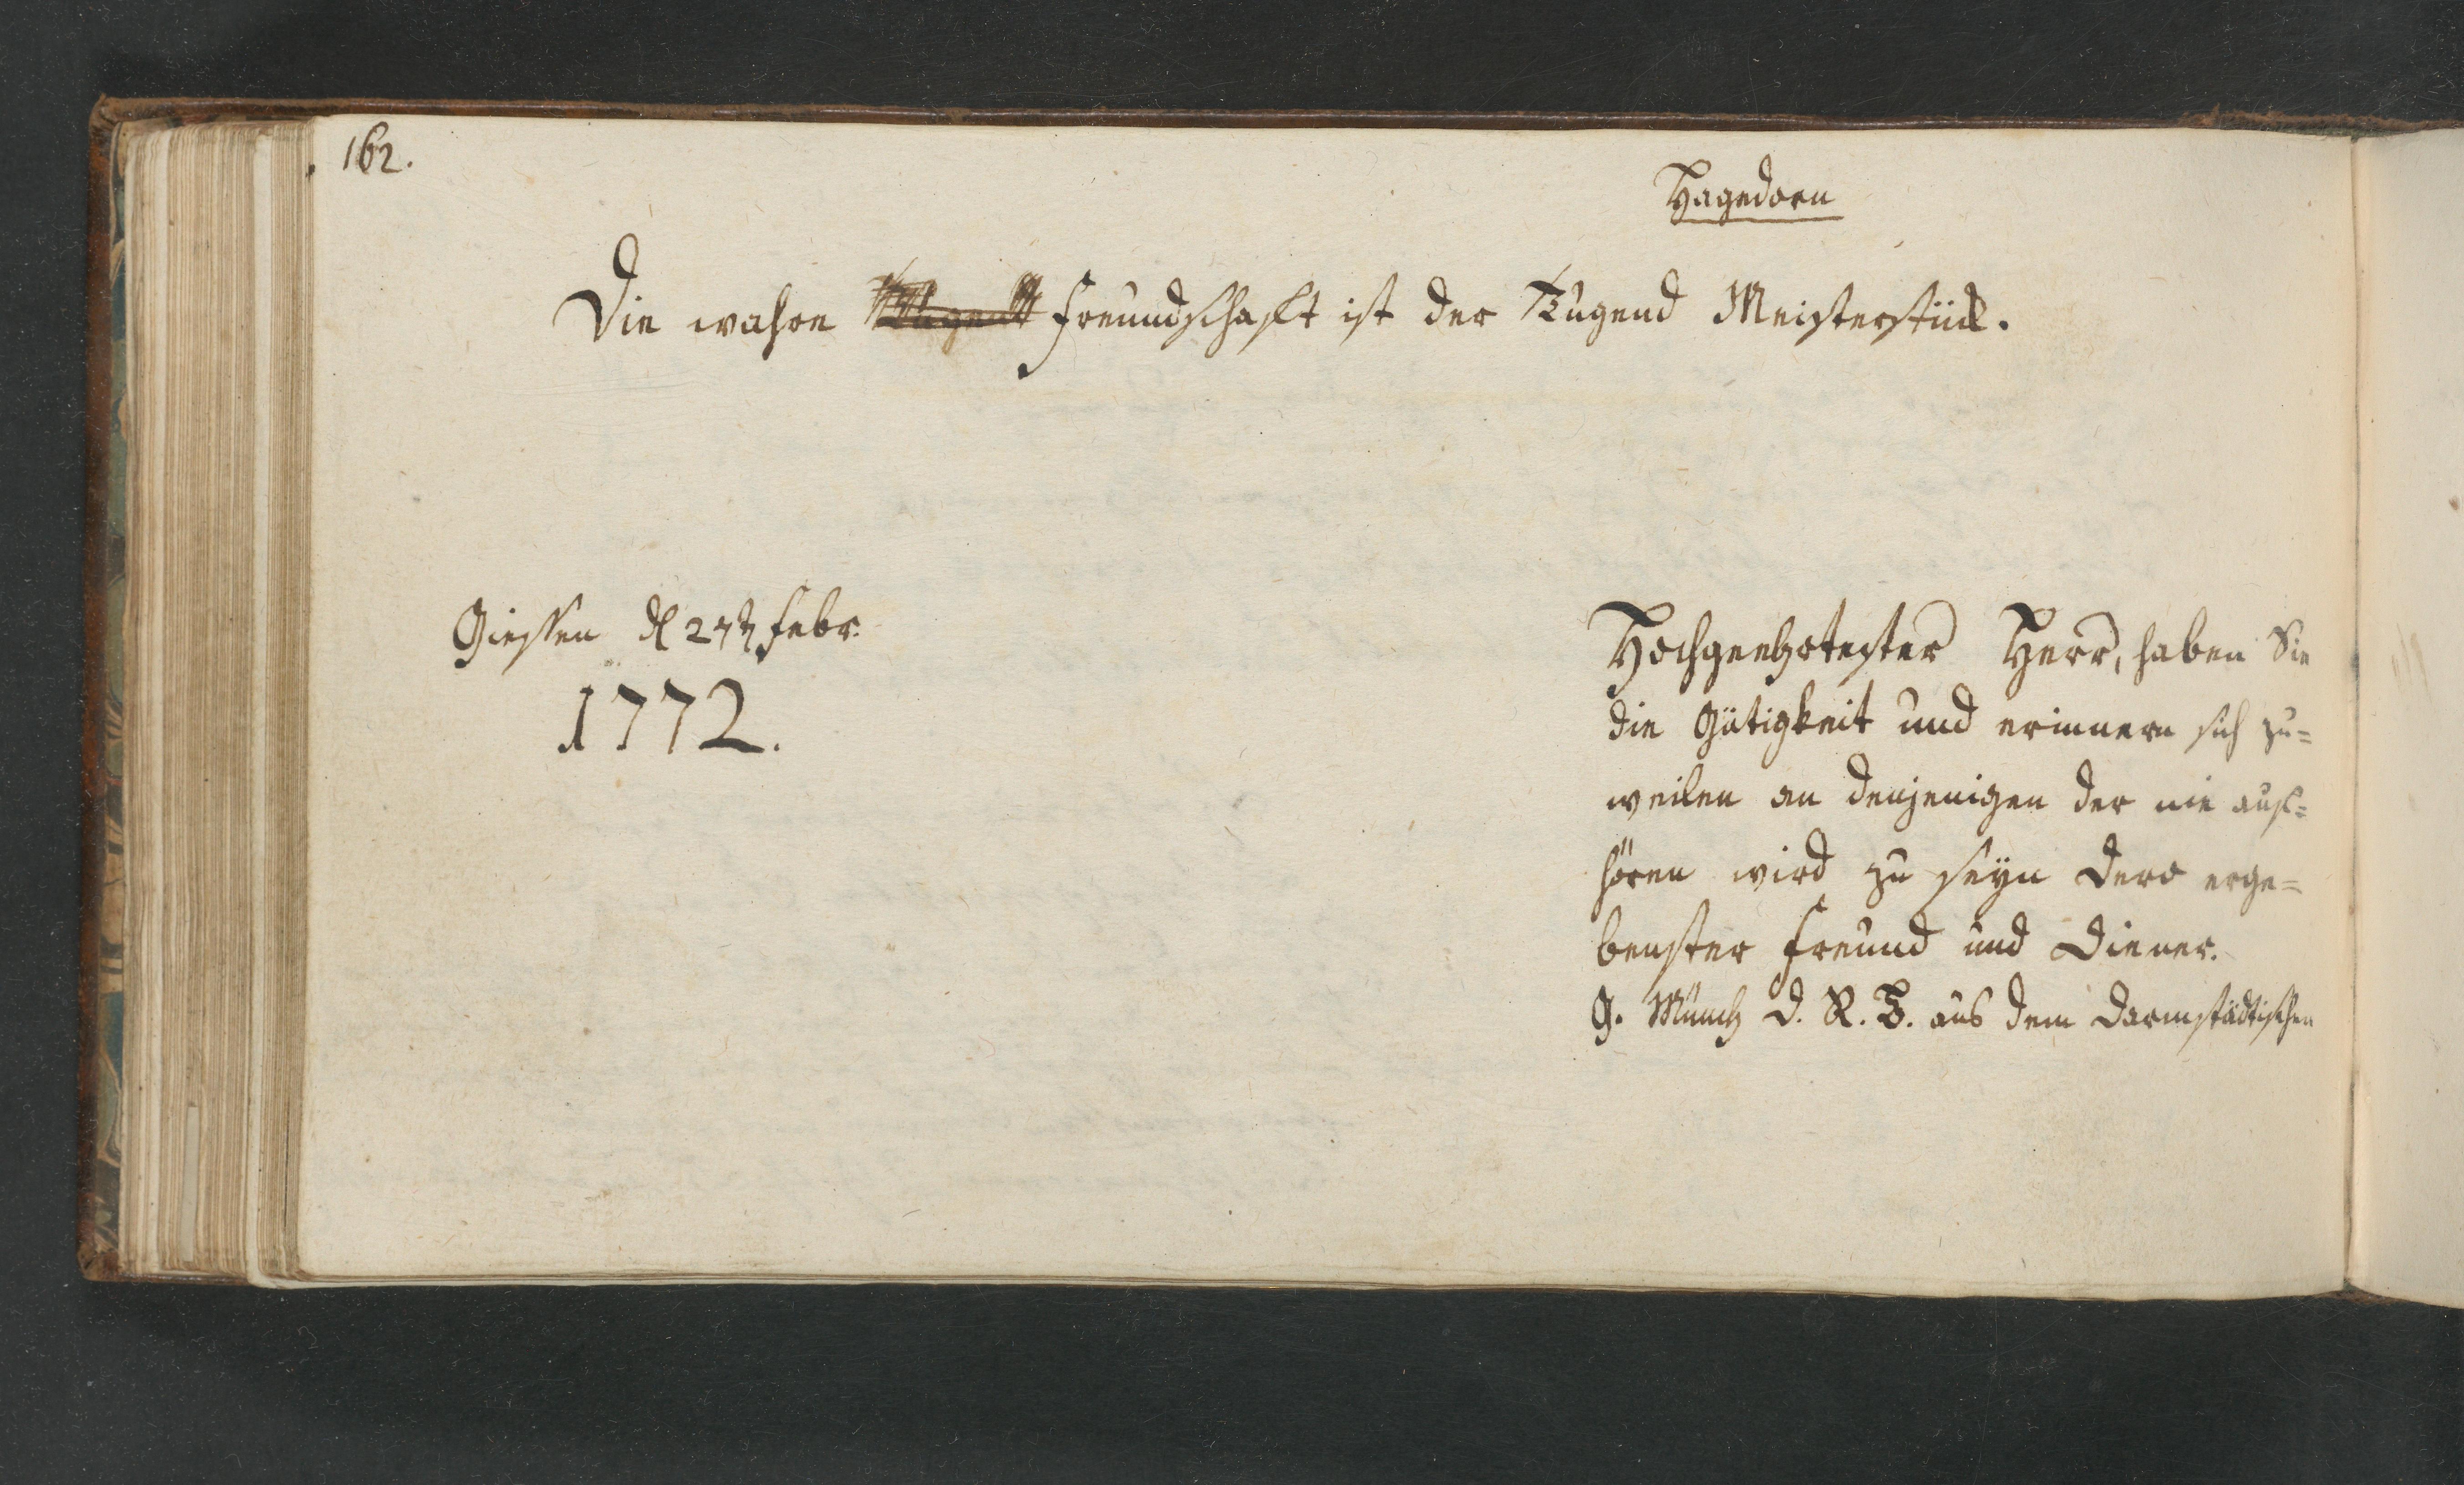 162.
Hagedorn
Die wahre Tugend Freundschaft ist der Tugend Meisterstück.
Giessen d 27t Febr.
1772.
Hochgeehrtester Herr, haben Sie
die Gütigkeit und erinnern sich zu=
weilen an denjenigen der nie auf=
hören wird zu seyn Dero erge=
benster Freund und Diener.
G. Münch d. R. B. aus dem Darmstädtischen